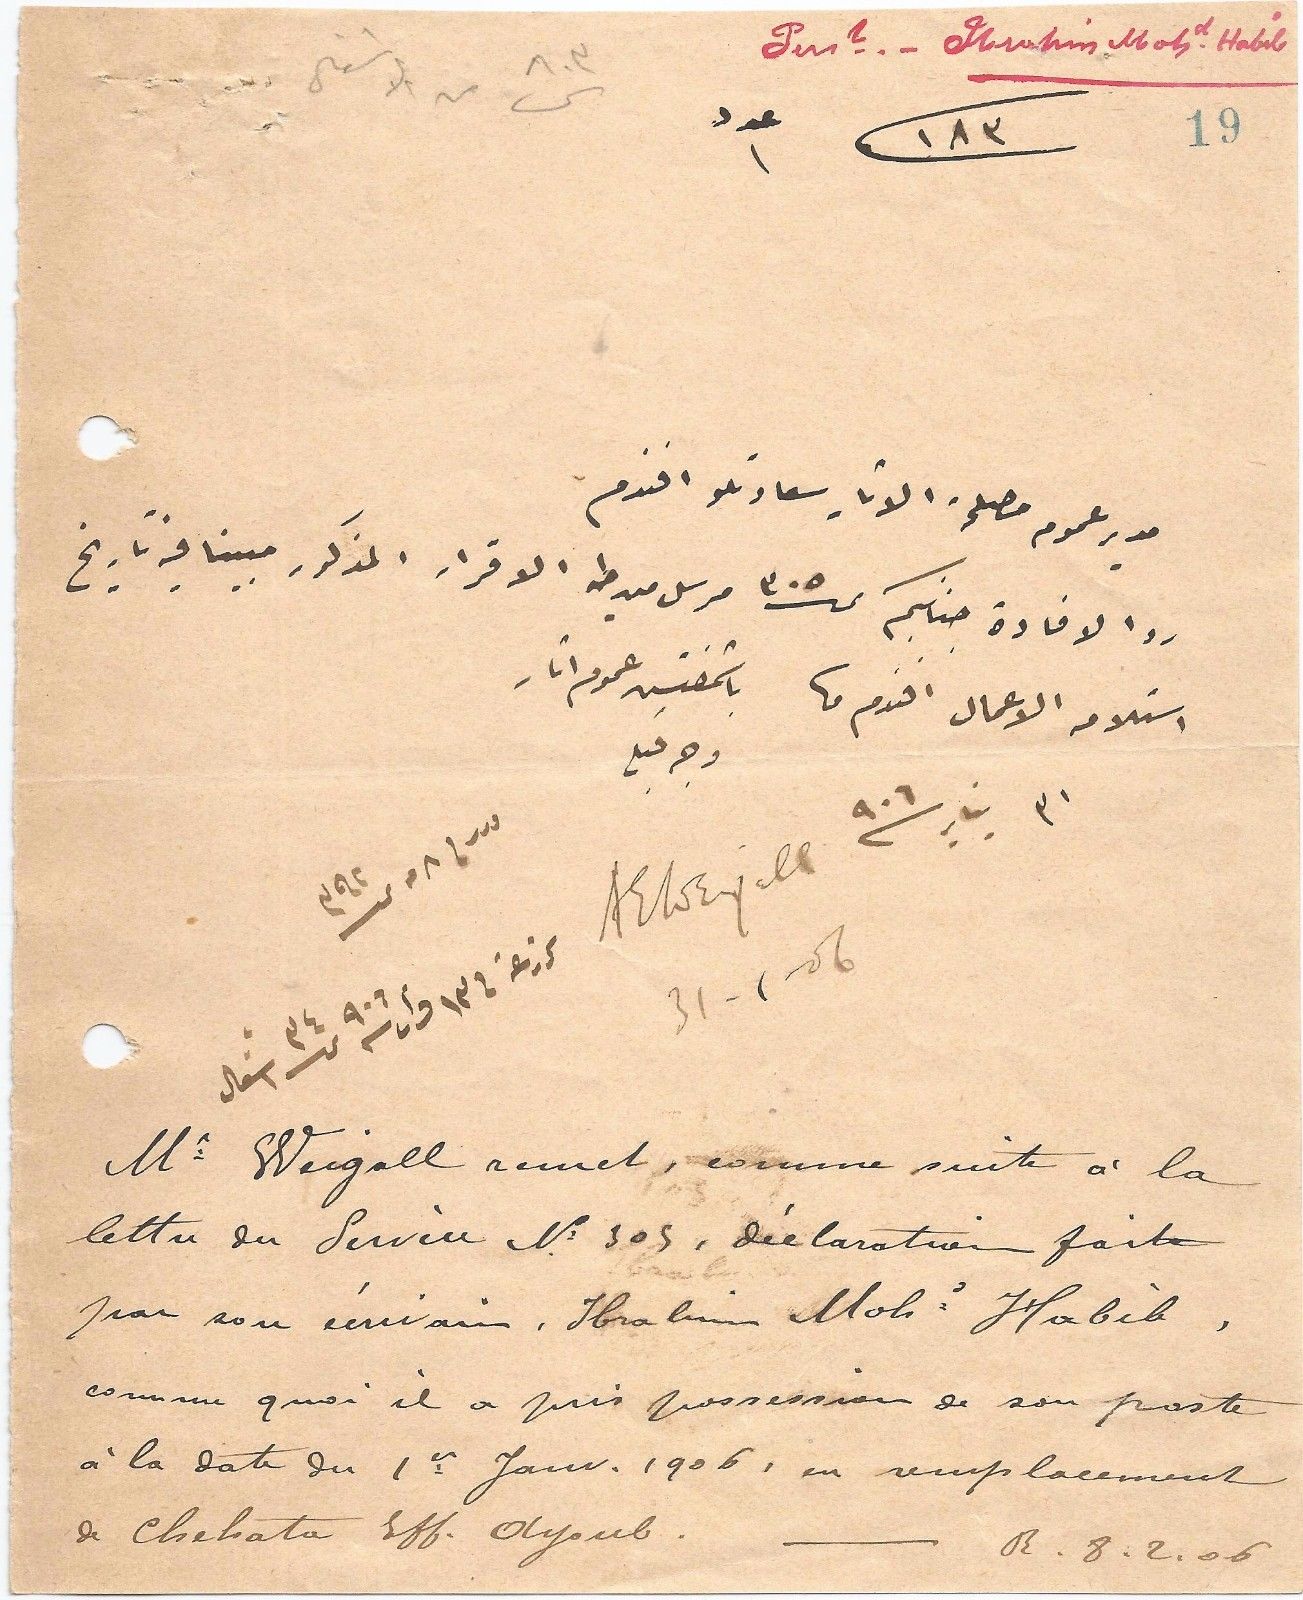 Pers<sup>l</sup>. - Ibrahim Moh<sup>d</sup>. Habib
٨٠٣
19
١٨٣
عدد
١
مدير عموم مصلحة الاثار سعادتلو افندم
ردا لافادة جنابكم نمرة ٣٠٥ مرسل من طيه الاقرار المذكور مبينا فيه تاريخ
استلامه الاعمال افندم
باشمفتش عموم اثار
وجه قبلي
٣١ يناير سنة ٩٠٦
AEWeigall
31-1-06
٣٩٢
٩٠٦ نمرة ٣٤ اشغال
Mr Weigall remet, comme suite à la
lettre du Service No 305, déclaration faite
par son écrivain, Ibrahim Mohd Habib,
comme quoi il a pris possession de son poste
à la date du 1er Janv. 1906, en remplacement
de Chehata Eff. Ayoub.
R. 8.2.06